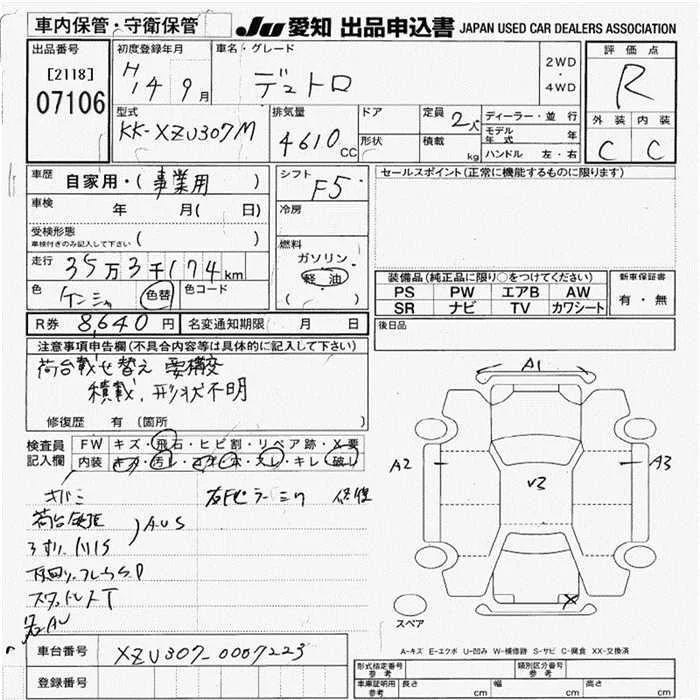 車内保管・守衛保管 JU 愛知 出品申込書 JAPAN USED CAR DEALERS ASSOCIATION
出品番号 初度登録年月 車名・グレード 評価点
[2118] H14 9月 デュトロ 2WD・4WD R
07106
型式 排気量 ドア 定員 2人 ディーラー・並行 外装 内装
KK-XZU307M 4610cc 形状 積載 kg モデル年式 年 C C
ハンドル 左・右
車歴 自家用・(事業用) シフト F5 セールスポイント(正常に機能するものに限ります)
車検 年 月( 日) 冷房
受検形態
車検付きのみ記入して下さい ( ) 燃料
走行 35万3千174km ガソリン 装備品(純正品に限り○をつけてください) 新車保証書
色 ケンシャ 色替 色コード 軽油 PS PW エアB AW 有・無
( ) SR ナビ TV カワシート
R券 8,640円 名変通知期限 月 日 後日品
注意事項申告欄(不具合内容等は具体的に記入して下さい)
荷台載せ替え 要構変
積載、形状不明
修復歴 有(箇所 )
A1
検査員 FW キズ・飛石・ヒビ割・リペア跡・X要
記入欄 内装 キズ・汚レ・コゲ・穴・スレ・キレ・破レ
A2 A3
V3
荷台 AUS
スペア
A-キズ E-エクボ U-凹み W-補修跡 S-サビ C-腐食 XX-交換済
車台番号 XZU307-0007223
形式指定番号 参考 類別区分番号 参考
登録番号 車庫証明用 参考 長さ cm 幅 cm 高さ cm